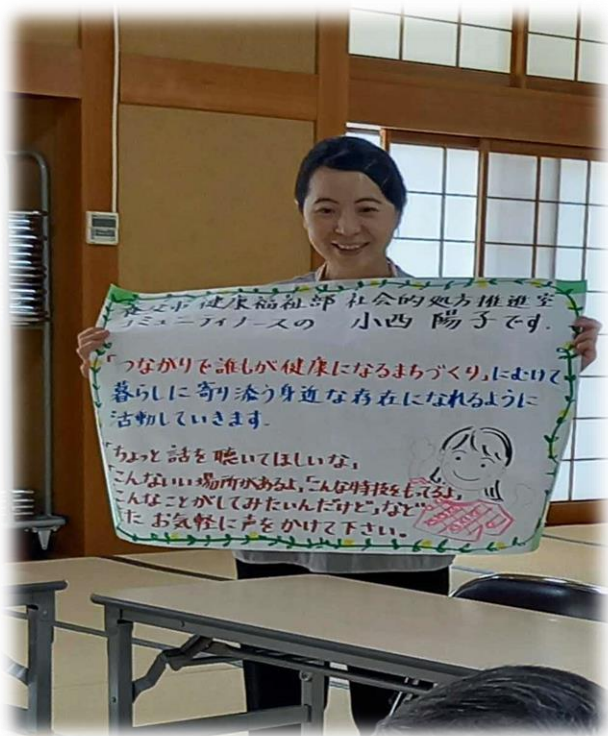 養父市健康福祉部 社会的処方推進室
コミュニティナースの 小西 陽子です.
「つながりで誰もが健康になるまちづくり」にむけて
暮らしに寄り添う身近な存在になれるように
活動していきます.
「ちょっと話を聴いてほしいな」
「こんないい場所があるよ」「こんな特技をもってるよ」
「こんなことがしてみたいんだけど」など
お気軽に声をかけて下さい。